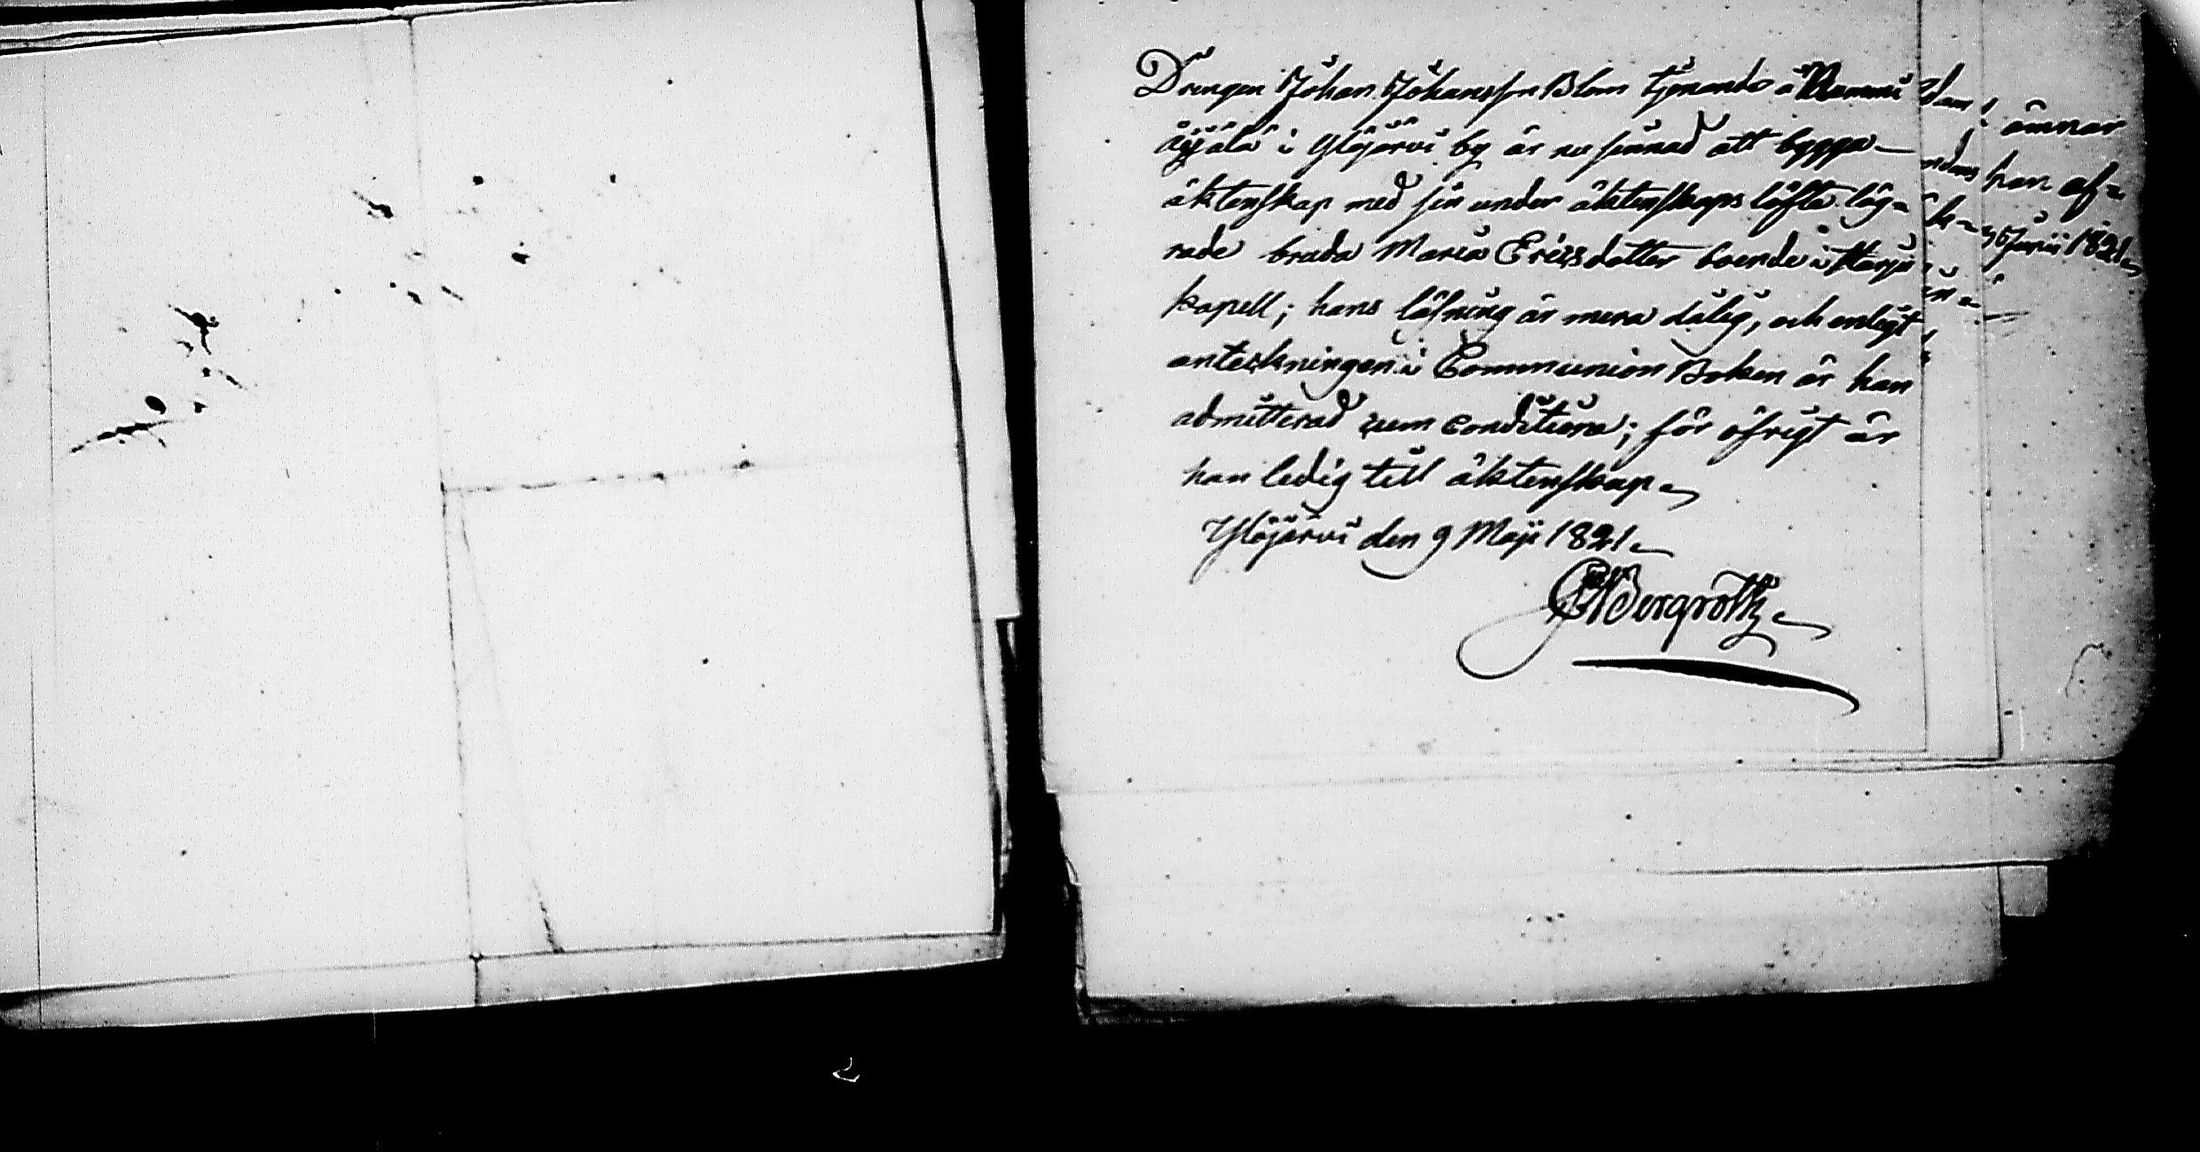 Drengen Johan Johansson Blom tjenande å
i Ylöjärvi by är nu sinnad att bygga
äktenskap med sin under äktenskaps löfte läg-
rade brud Maria Ericsdotter boende i Harju
kapell; hans läsning är mera dålig, och enligt
anteckningen i Communion Boken är han
admitterad cum conditione; för öfrigt är
han ledig till äktenskap.
Ylöjärvi den 9 Maji 1821.
Bergroth
ämnar
han af-
Junii 1821.